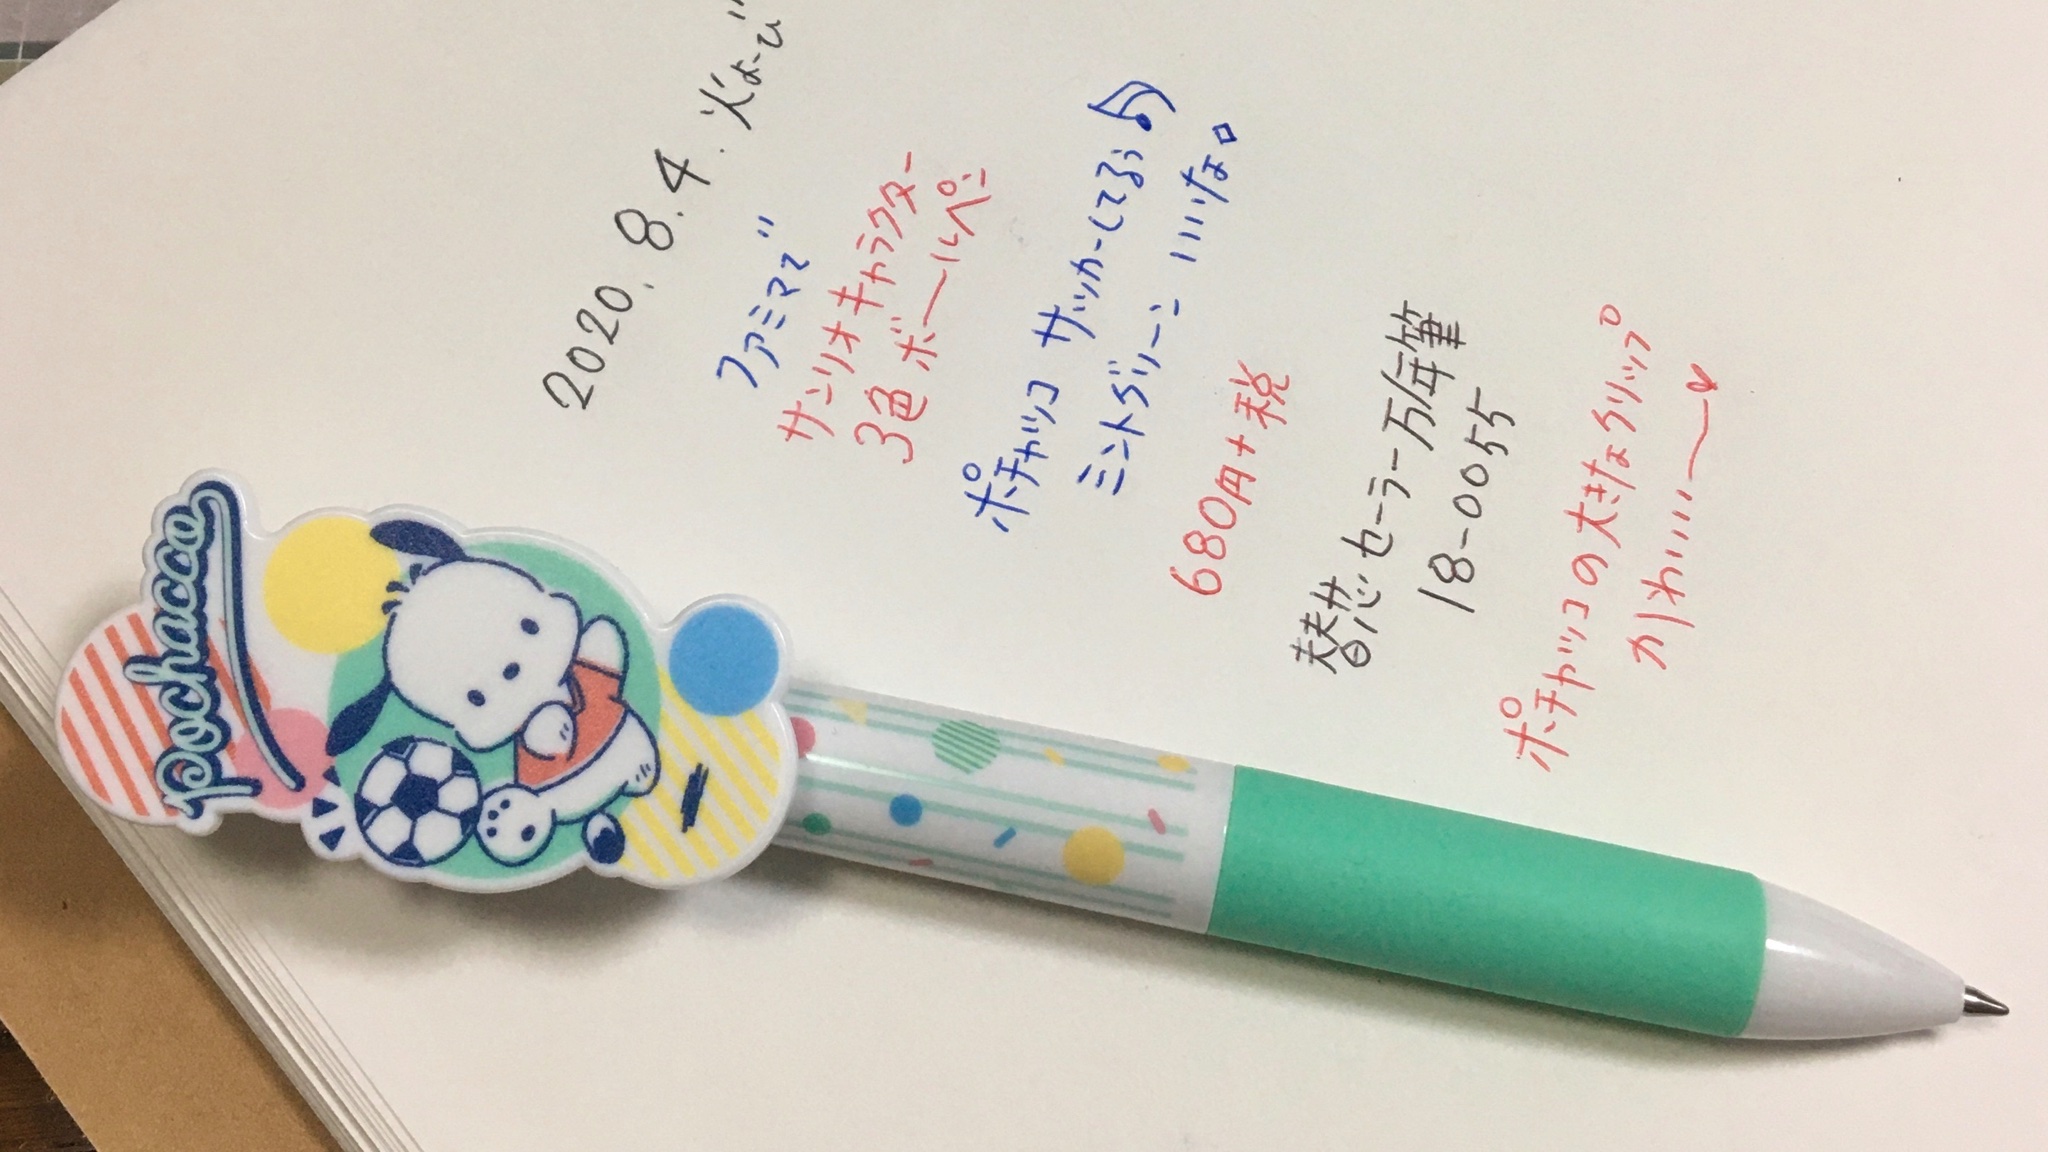 2020.8.4.火よーび
ファミマで
サンリオキャラクター
3色ボールペン
ポチャッコ サッカーしてるぅ♪
ミントグリーン いいな。
680円+税
替芯 セーラー万年筆
18-0055
ポチャッコの大きなクリップ
かわいいー♥
pochacco